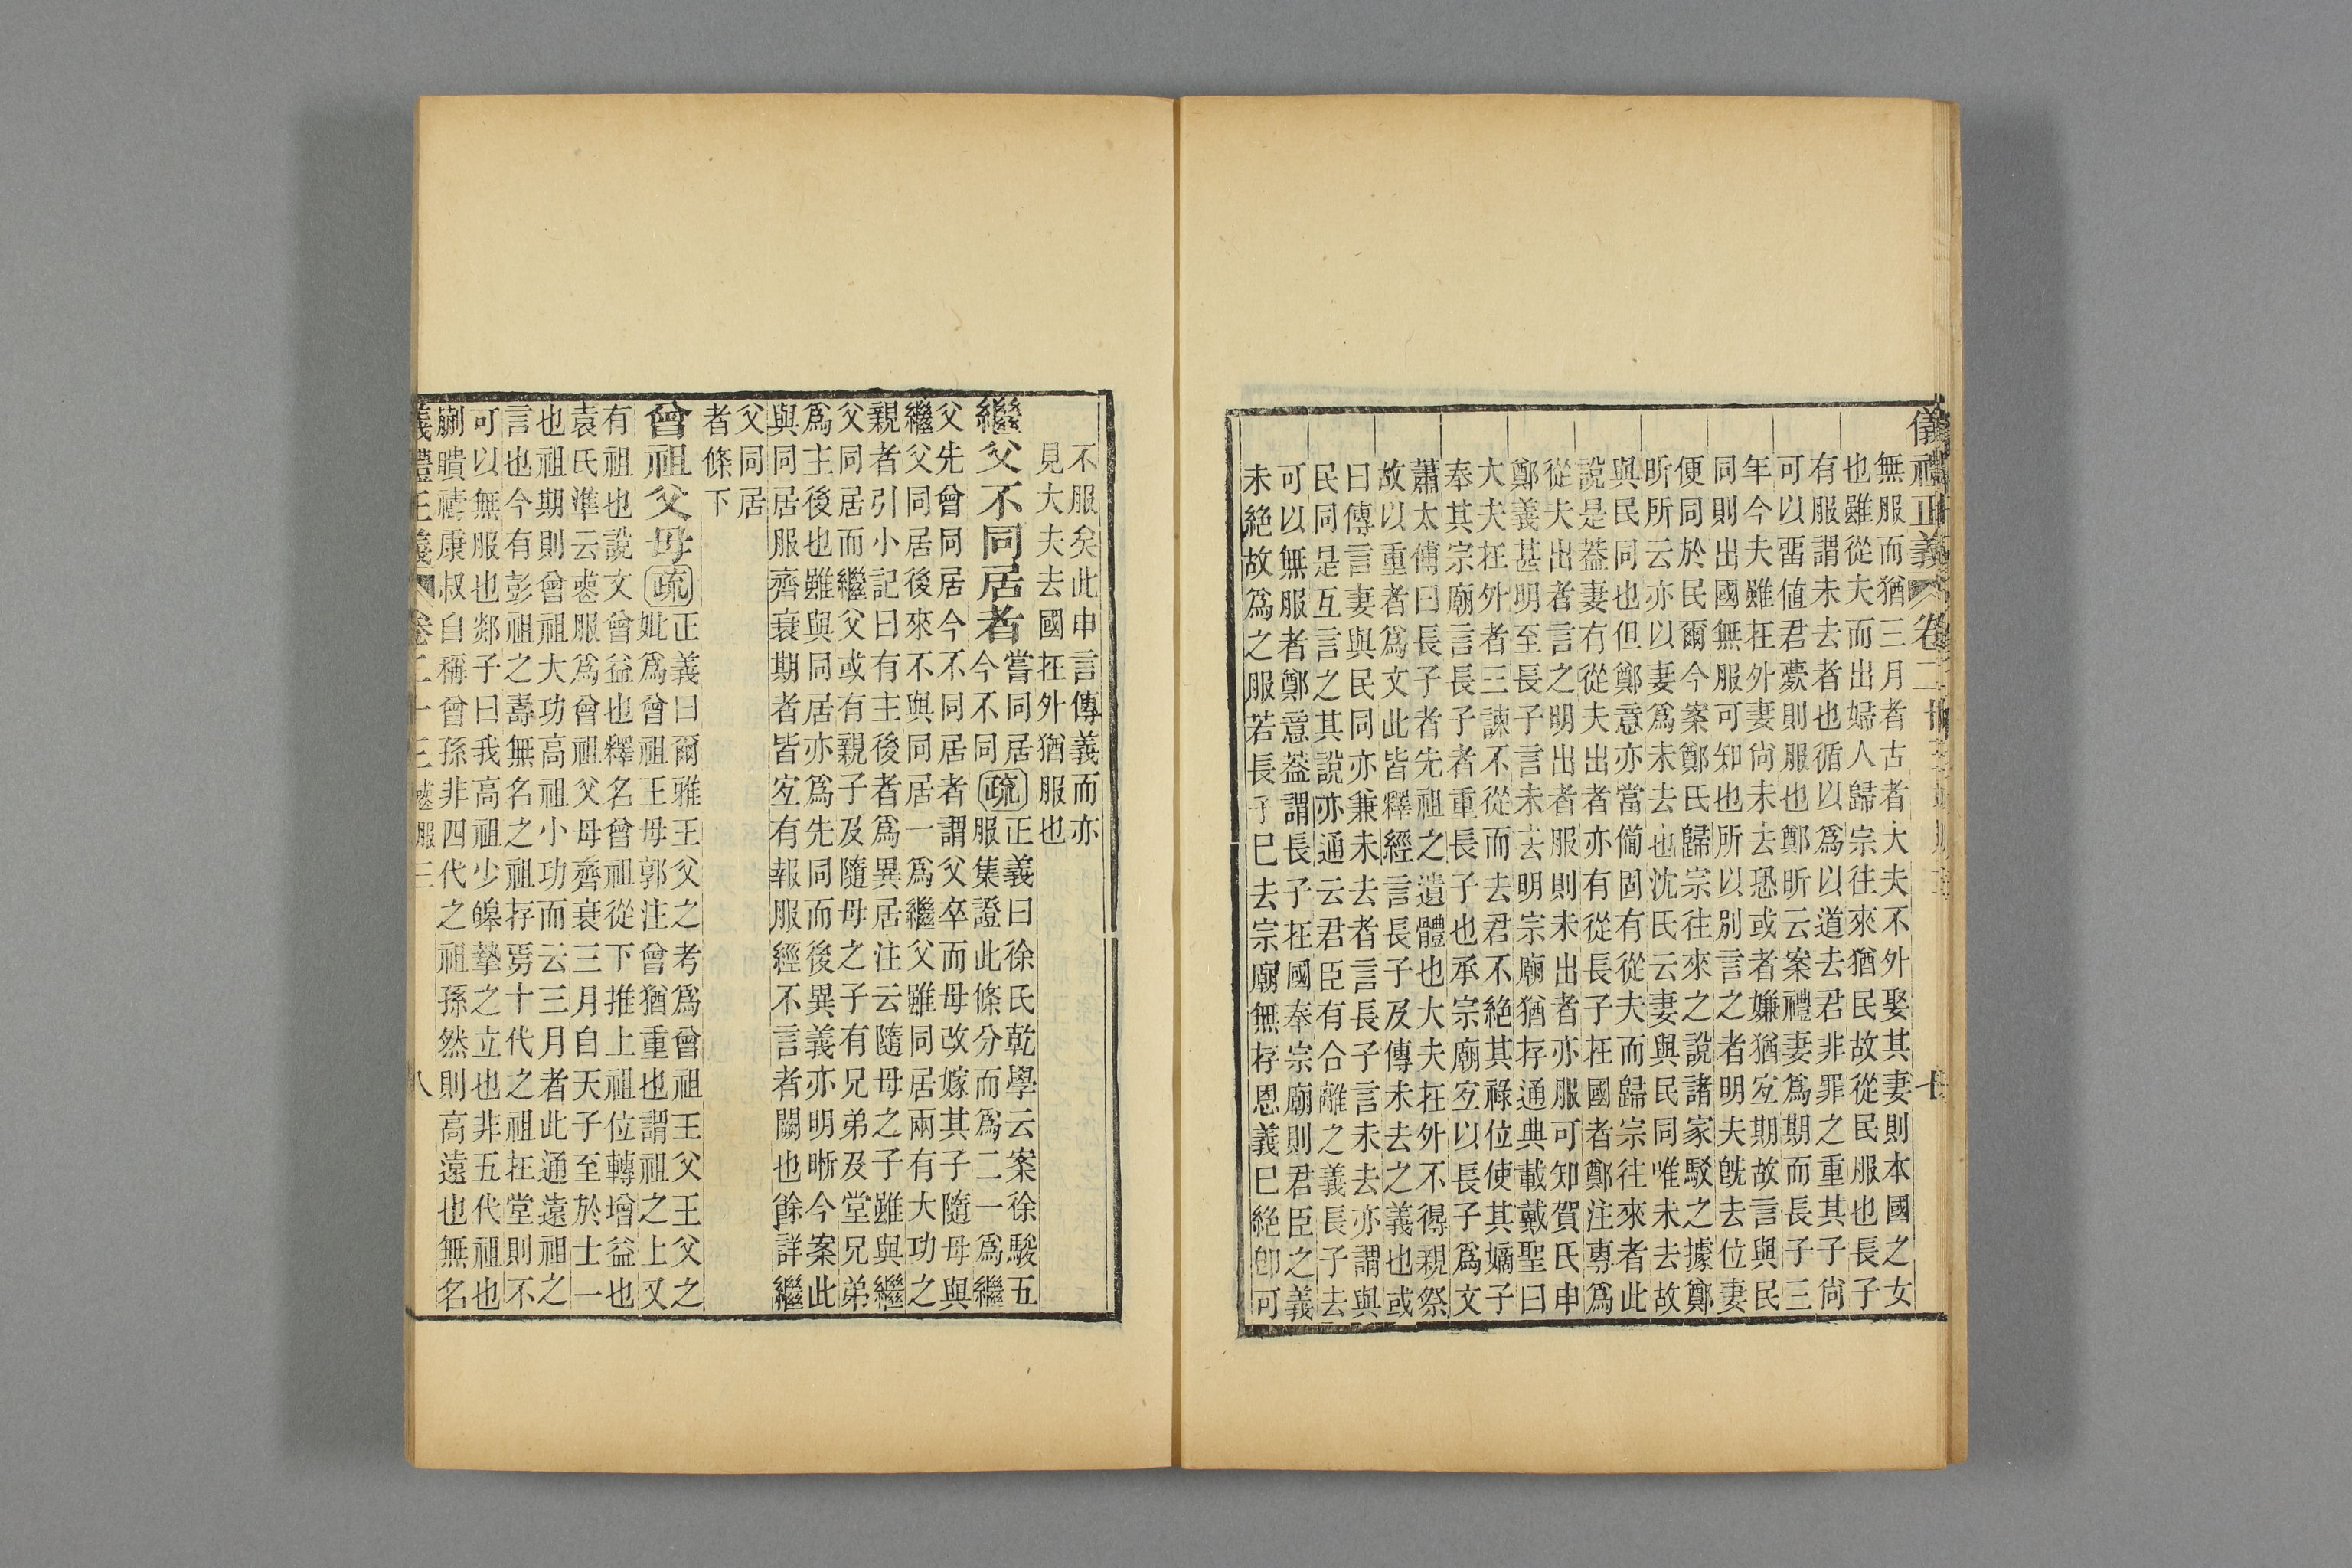 儀禮正義 卷二十
無服而猶三月者古者大夫不外娶其妻則本國之女
也雖從夫而出婦人歸宗往來猶民故從民服也長子
有服謂未去者也循以爲以道去君非罪之重其子尙
可以畱値君薨則服也鄭昕云案禮妻爲期而長子三
年今夫雖在外妻尙未去恐或者嫌猶宜期故言與民
同則出國無服可知也所以別言之者明夫旣去位妻
便同於民爾今案鄭氏歸宗往來之說諸家駁之據鄭
昕所云亦以妻爲未去也沈氏云妻與民同唯未去故
與民同也但鄭意亦當備固有從夫而歸宗往來者此
說是葢妻有從夫出者亦有從長子在國者鄭注專爲
從夫出者言之明出者服則未出者亦服可知賀氏申
鄭義甚明至長子言未去明宗廟猶存通典載戴聖曰
大夫在外者三諫不從而去君不絕其祿位使其嫡子
奉其宗廟言長子者重長子也承宗廟宜以長子爲文
蕭太傅曰長子者先祖之遺體也大夫在外不得親祭
故以重者爲文此皆釋經言長子及傳未去之義也或
曰傳言妻與民同亦兼未去者言長子言未去亦謂與
民同是互言之其說亦通云君臣有合離之義長子去
可以無服者鄭意葢謂長子在國奉宗廟則君臣之義
未絕故爲之服若長子已去宗廟無存恩義已絕卽可
不服矣此申言傳義而亦
見大夫去國在外猶服也
繼父不同居者 嘗同居今不同 疏 正義曰徐氏乾學云案徐駿五服集證此條分而爲二一爲繼
父先曾同居今不同居者謂父卒而母改嫁其子隨母與
繼父同居後來不與同居一爲繼父雖同居兩有大功之
親者引小記曰有主後者爲異居注云隨母之子雖與繼
父同居而繼父或有親子及隨母之子有兄弟及堂兄弟
爲主後也雖與同居亦爲先同而後異義亦明晣今案此
與同居服齊衰期者皆宜有報服經不言者闕也餘詳繼
父同居
者條下
曾祖父母 疏 正義曰爾雅王父之考爲曾祖王父王父之
妣爲曾祖王母郭注曾猶重也謂祖之上又
有祖也說文曾益也釋名曾祖從下推上祖位轉增益也
袁氏準云喪服爲曾祖父母齊衰三月自天子至於士一
也祖期則曾祖大功高祖小功而云三月者此通遠祖之
言也今有彭祖之壽無名之祖存焉十代之祖在堂則不
可以無服也郯子曰我高祖少皞摯之立也非五代祖也
蒯聵禱康叔自稱曾孫非四代之祖孫然則高遠也無名
儀禮正義 卷二十三 喪服三 八